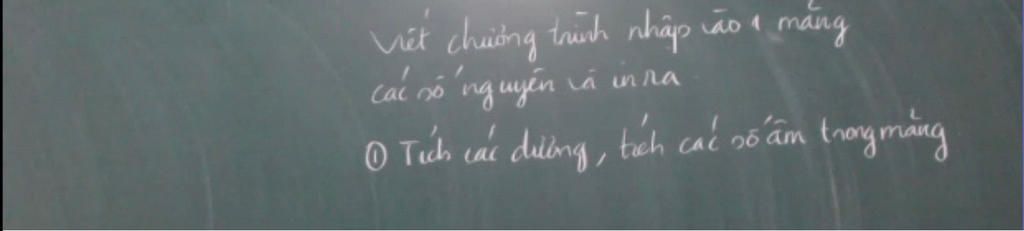 Viết chương trình nhập vào 1 mảng
các số nguyên và in ra
① Tích các dương, tích các số âm trong mảng